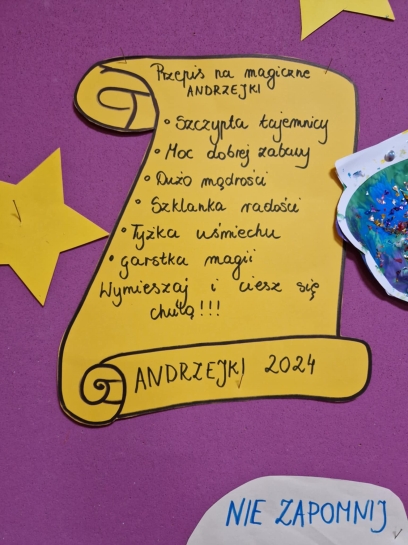 Przepis na magiczne
ANDRZEJKI
• Szczypta tajemnicy
• Moc dobrej zabawy
• Dużo mądrości
• Szklanka radości
• Łyżka uśmiechu
• garstka magii
Wymieszaj i ciesz się
chwilą!!!
ANDRZEJKI 2024
NIE ZAPOMNIJ